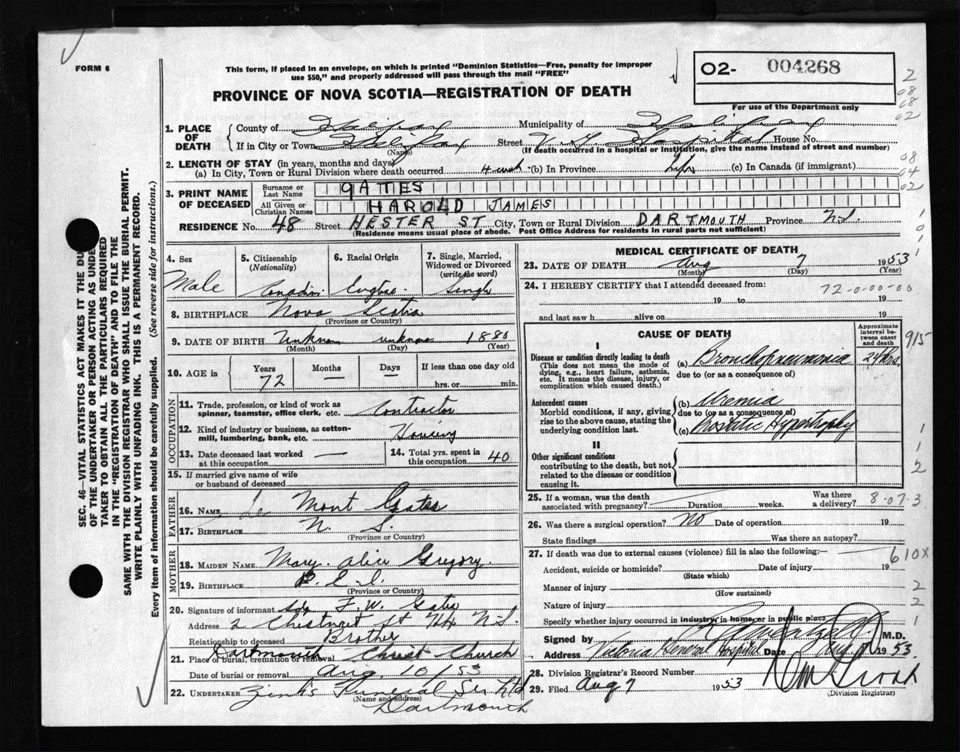 FORM 6
This form, if placed in an envelope, on which is printed "Dominion Statistics—Free, penalty for improper
use $50," and properly addressed will pass through the mail "FREE"
PROVINCE OF NOVA SCOTIA—REGISTRATION OF DEATH
02- 004268
For use of the Department only
2
08
68
02
08
64
02
1. PLACE OF DEATH
County of Halifax Municipality of Halifax
If in City or Town Halifax Street V. G. Hospital House No.
(Name) (If death occurred in a hospital or institution, give the name instead of street and number)
2. LENGTH OF STAY (in years, months and days)
(a) In City, Town or Rural Division where death occurred 4 (b) In Province Life (c) In Canada (if immigrant)
3. PRINT NAME OF DECEASED
Surname or Last Name GATES
All Given or Christian Names HAROLD JAMES
RESIDENCE No. 48 Street HESTER ST City, Town or Rural Division DARTMOUTH Province N.S.
(Residence means usual place of abode. Post Office Address for residents in rural parts not sufficient)
SEC. 46—VITAL STATISTICS ACT MAKES IT THE DU
OF THE UNDERTAKER OR PERSON ACTING AS UNDE
TAKER TO OBTAIN ALL THE PARTICULARS REQUIRED
IN THE "REGISTRATION OF DEATH" AND TO FILE THE
SAME WITH THE DIVISION REGISTRAR WHO SHALL ISSUE THE BURIAL PERMIT.
WRITE PLAINLY WITH UNFADING INK. THIS IS A PERMANENT RECORD.
Every item of information should be carefully supplied. (See reverse side for instructions.)
4. Sex Male
5. Citizenship (Nationality) Canadian
6. Racial Origin English
7. Single, Married, Widowed or Divorced (write the word) Single
8. BIRTHPLACE Nova Scotia
(Province or Country)
9. DATE OF BIRTH Unknown unknown 1880
(Month) (Day) (Year)
10. AGE in Years 72 Months — Days — If less than one day old
hrs. or min.
OCCUPATION
11. Trade, profession, or kind of work as
spinner, teamster, office clerk, etc. Contractor
12. Kind of industry or business, as cotton-
mill, lumbering, bank, etc. Housing
13. Date deceased last worked at this occupation —
14. Total yrs. spent in this occupation 40
15. If married give name of wife
or husband of deceased
FATHER
16. NAME Le Mont Gates
17. BIRTHPLACE N. S.
(Province or Country)
MOTHER
18. MAIDEN NAME Mary Alice Gregory.
19. BIRTHPLACE P.E.I.
(Province or Country)
20. Signature of informant F. W. Gates
Address 2 Chestnut St Hfx N.S.
Relationship to deceased Brother
21. Place of burial, cremation or removal Dartmouth Christ Church
Date of burial or removal Aug 10 1953
22. UNDERTAKER Zink's Funeral Ser. Ltd
(Name and address)
Dartmouth
MEDICAL CERTIFICATE OF DEATH
23. DATE OF DEATH Aug 7 1953
(Month) (Day) (Year)
24. I HEREBY CERTIFY that I attended deceased from:
72-0-00-00
19 to 19
and last saw h alive on 19
CAUSE OF DEATH
Approximate interval between onset and death
915
I
Disease or condition directly leading to death
(This does not mean the mode of dying, e.g., heart failure, asthenia, etc. It means the disease, injury, or complication which caused death.)
(a) Bronchopneumonia 24 hrs.
due to (or as a consequence of)
Antecedent causes
Morbid conditions, if any, giving rise to the above cause, stating the underlying condition last.
(b) Uremia
due to (or as a consequence of)
(c) Prostatic Hypertrophy
II
Other significant conditions
contributing to the death, but not related to the disease or condition causing it.
1
1
2
25. If a woman, was the death associated with pregnancy? Duration weeks. Was there a delivery?
8-07-3
26. Was there a surgical operation? No Date of operation 19
State findings Was there an autopsy?
27. If death was due to external causes (violence) fill in also the following:—
610X
Accident, suicide or homicide? Date of injury 19
(State which)
Manner of injury 2
(How sustained)
Nature of injury 2
Specify whether injury occurred in industry in home, or in public place 1
Signed by M.D.
Address Victoria General Hospital Date Aug 7 1953
28. Division Registrar's Record Number
29. Filed Aug 7 1953
(Division Registrar)